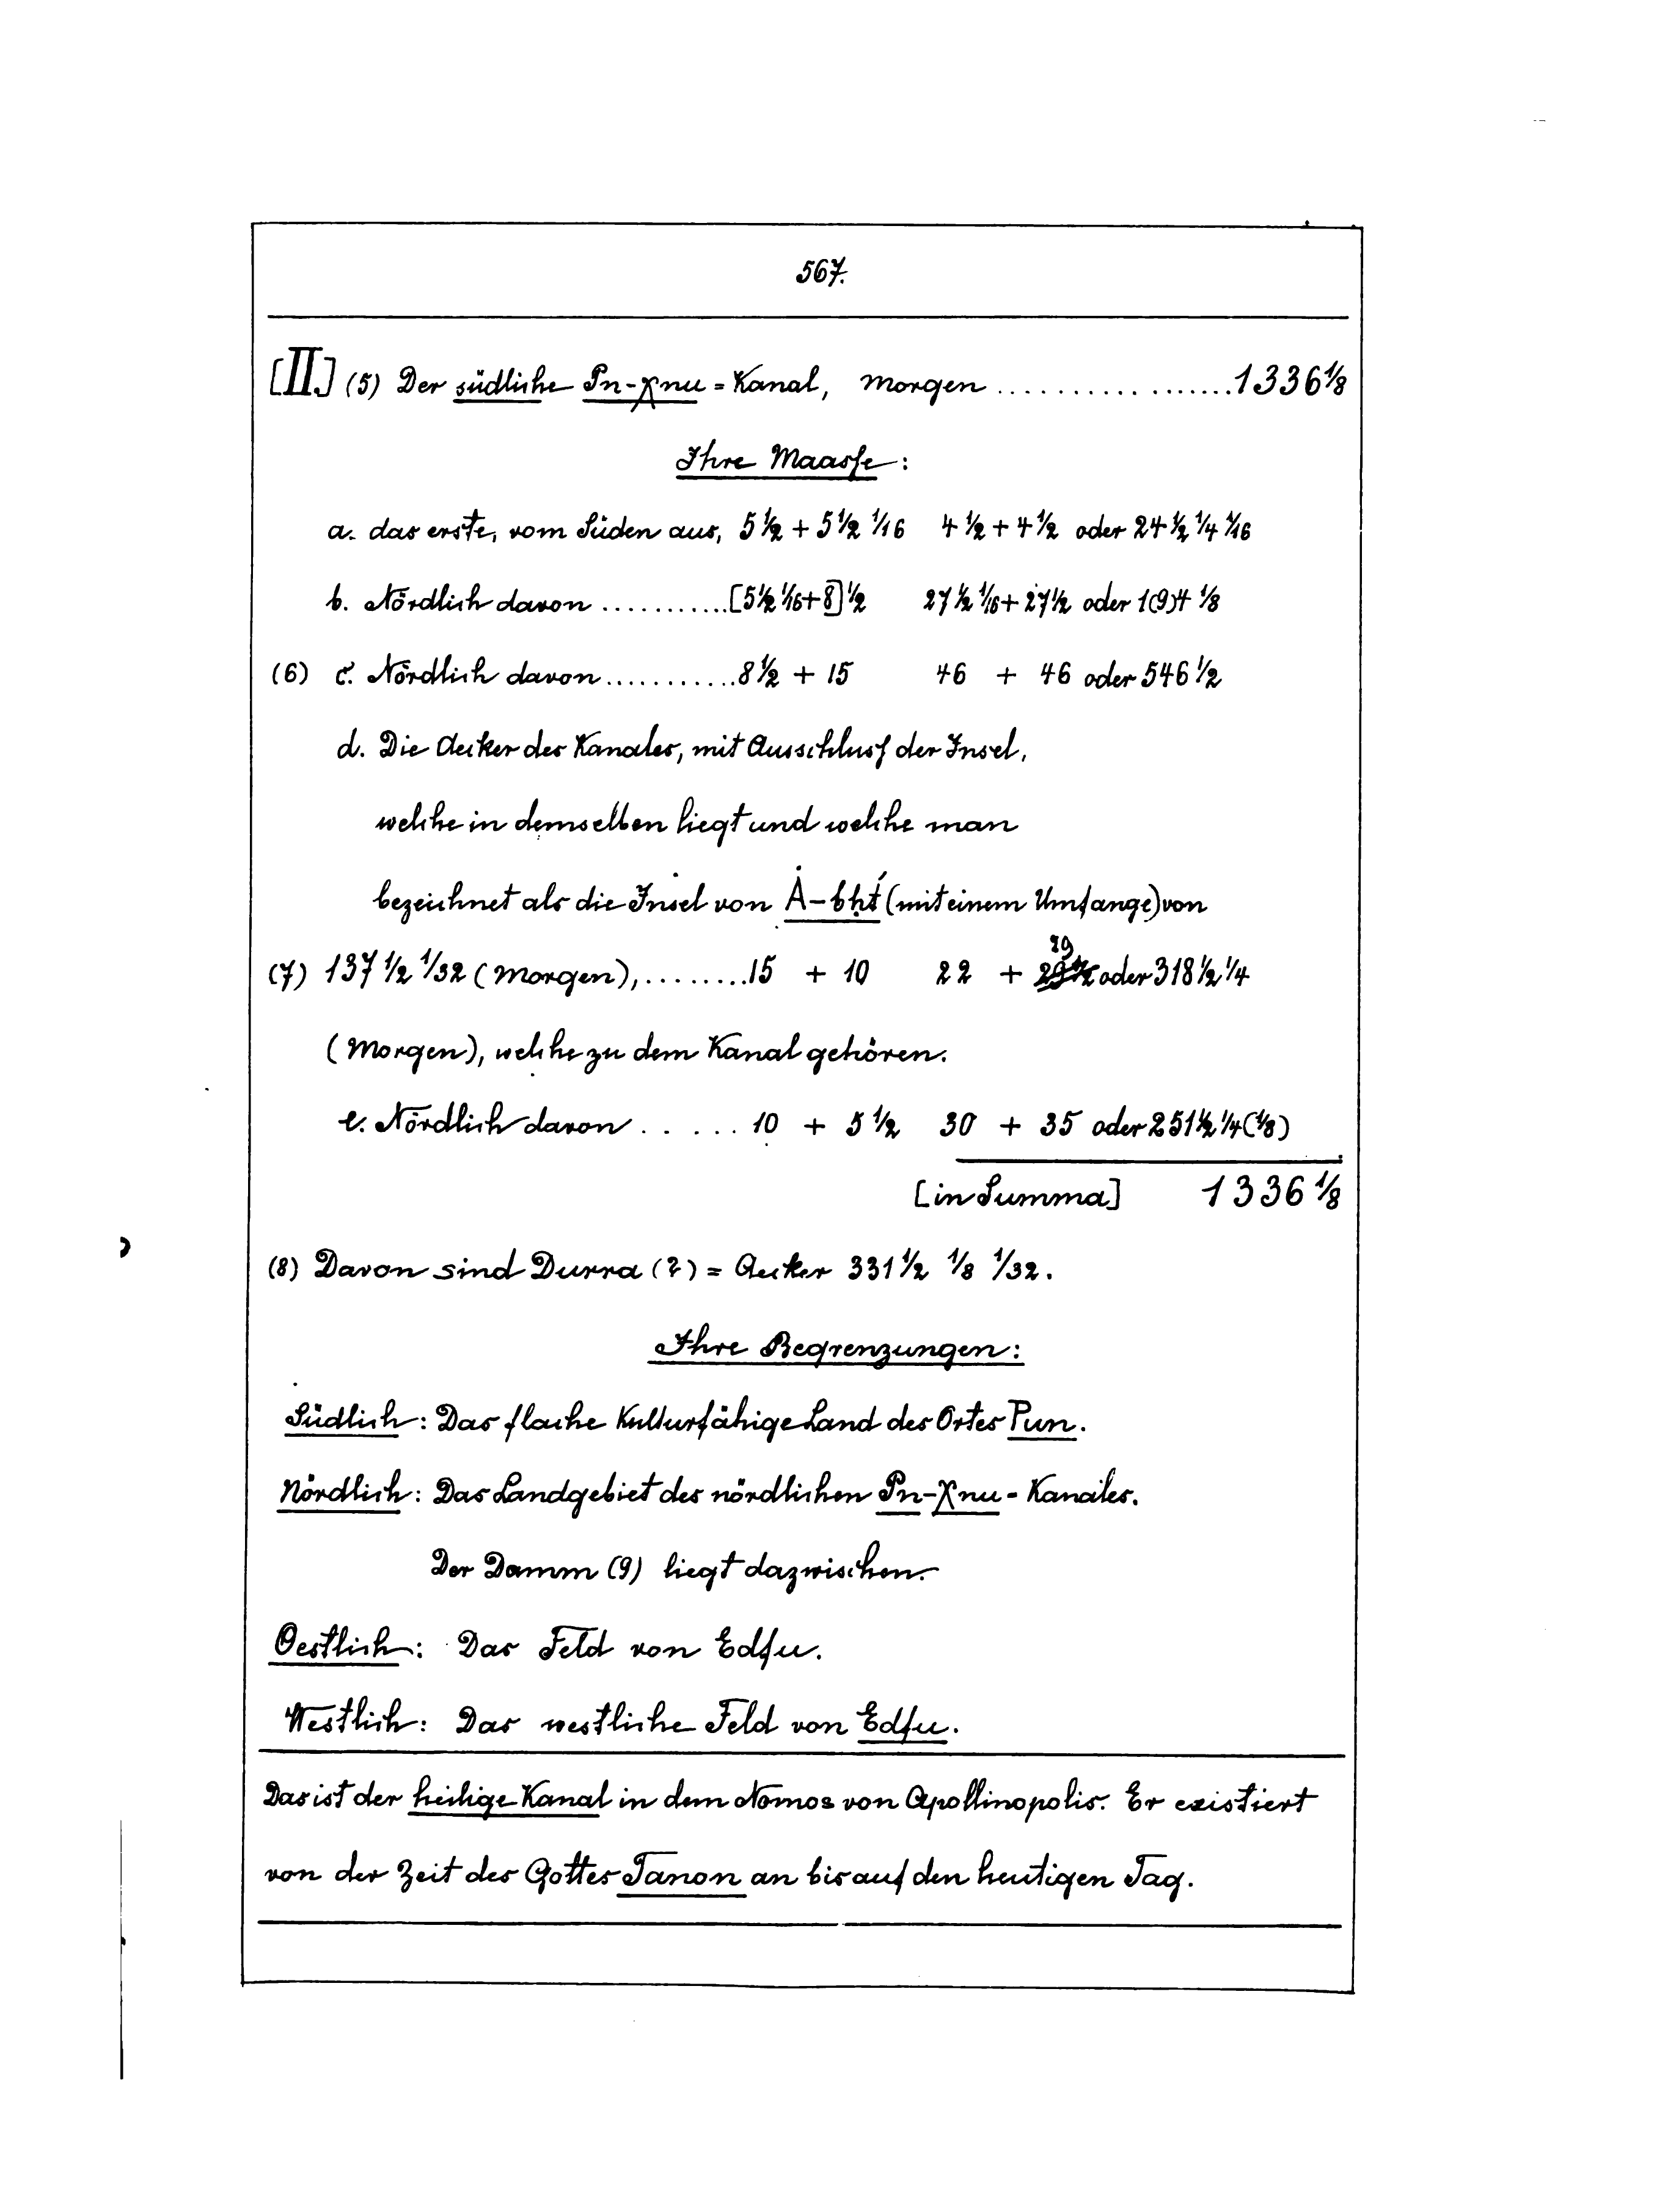 567.
[II.] (5) Der südliche Pn-χnu = Kanal, Morgen .................. 1336 1/8
Ihre Maasse:
a. das erste, vom Süden aus, 5 1/2 + 5 1/2 1/16 4 1/2 + 4 1/2 oder 24 1/2 1/4 1/16
b. Nördlich davon ........... [5 1/2 1/16 + 8] 1/2 27 1/2 1/16 + 27 1/2 oder 1(9)4 1/8
(6) c. Nördlich davon ........... 8 1/2 + 15 46 + 46 oder 546 1/2
d. Die Aecker des Kanales, mit Ausschluss der Insel,
welche in demselben liegt und welche man
bezeichnet als die Insel von Ȧ-bḥt́ (mit einem Umfange) von
(7) 137 1/2 1/32 (Morgen), ........ 15 + 10 22 + 29 oder 318 1/2 1/4
(Morgen), welche zu dem Kanal gehören.
e. Nördlich davon ...... 10 + 5 1/2 30 + 35 oder 251 1/2 1/4 (1/8)
[in Summa] 1336 1/8
(8) Davon sind Durra (?) = Aecker 331 1/2 1/8 1/32.
Ihre Begrenzungen:
Südlich: Das flache Kulturfähige Land des Ortes Pun.
Nördlich: Das Landgebiet des nördlichen Pn-χnu-Kanales.
Der Damm (9) liegt dazwischen.
Oestlich: Das Feld von Edfu.
Westlich: Das westliche Feld von Edfu.
Das ist der heilige Kanal in dem Nomos von Apollinopolis. Er existiert
von der Zeit des Gottes Tanon an bis auf den heutigen Tag.